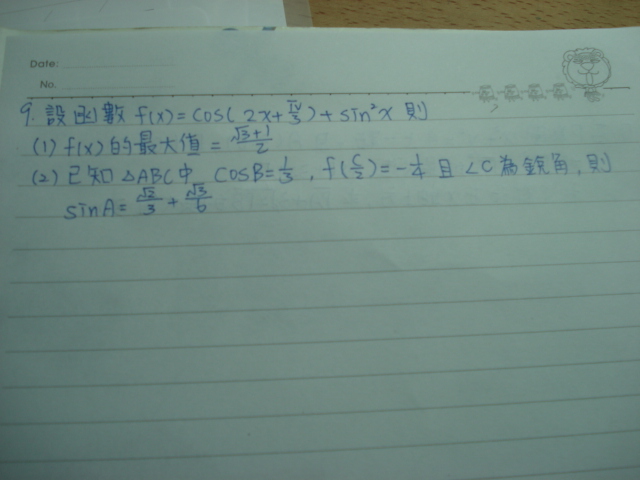 Date:
No.
9. 設函數 f(x)=cos(2x+π/3)+sin²x 則
(1) f(x)的最大值=(√3+1)/2
(2) 已知△ABC中, cosB=1/3, f(C/2)=-1/4 且∠C為銳角, 則
sinA=√2/3+√3/6